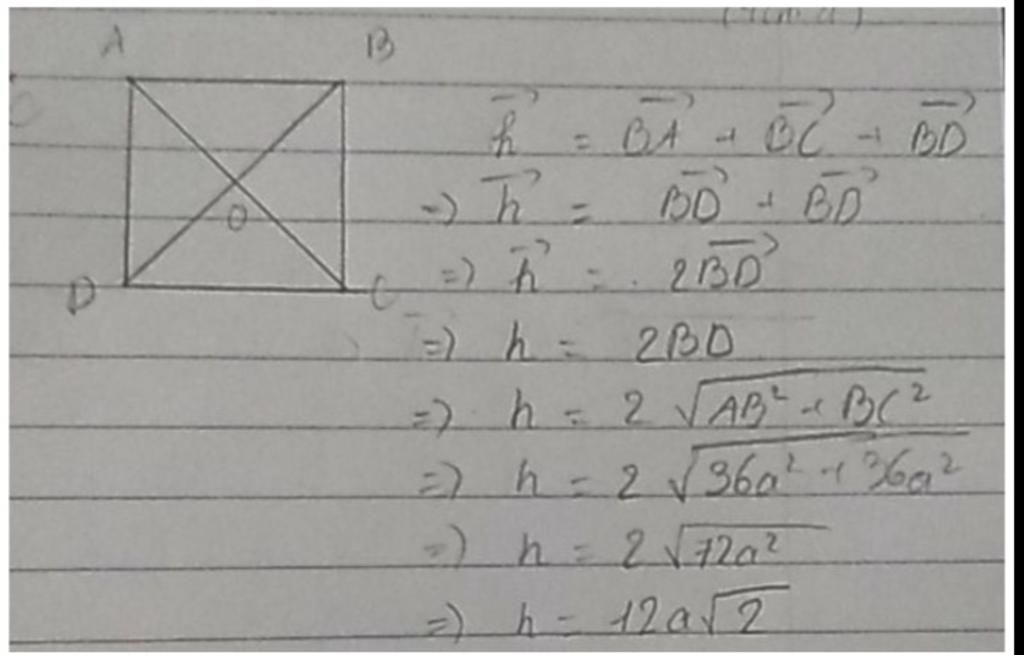 A B
D C
O
\vec{h} = \vec{BA} + \vec{BC} + \vec{BD}
=> \vec{h} = \vec{BD} + \vec{BD}
=> \vec{h} = 2\vec{BD}
=> h = 2BD
=> h = 2 √(AB² + BC²)
=> h = 2 √(36a² + 36a²)
=> h = 2 √(72a²)
=> h = 12a√2